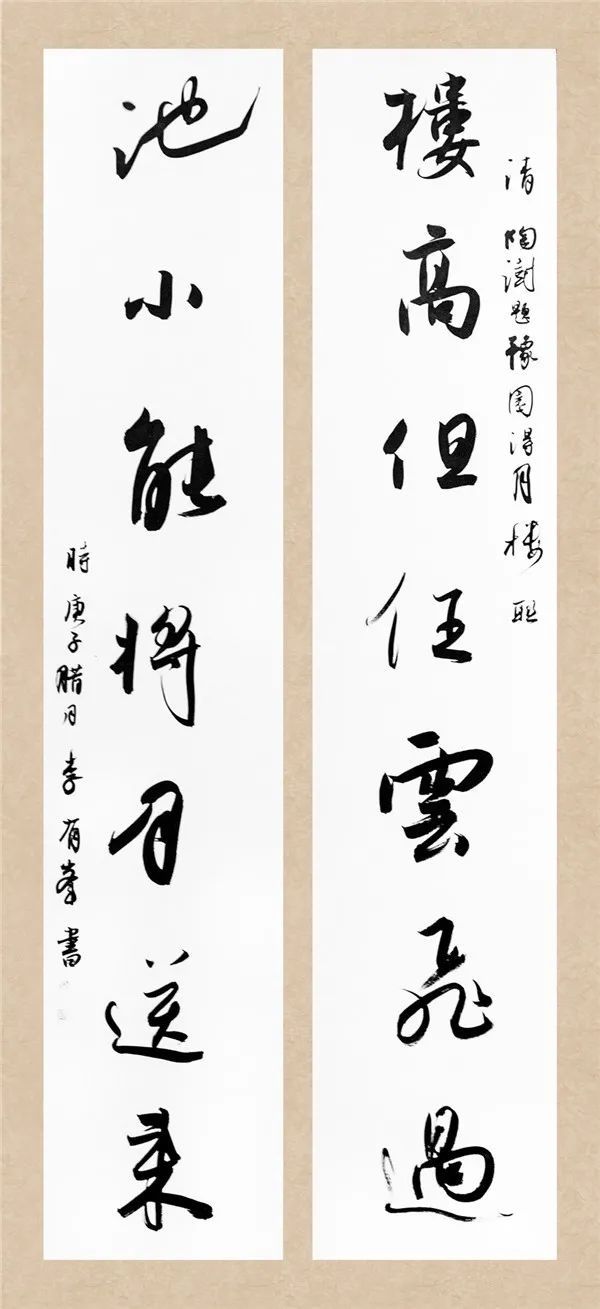 清陶澍題豫園得月樓聯
樓高但任雲飛過
池小能將月送來
時庚子腊月李有峯書